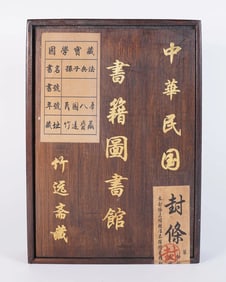 國學寶藏
書名 孫子兵法
書號
年號 民國八年
藏址 竹遠齋藏
中華民国
書籍圖書館
竹远斋藏
封條